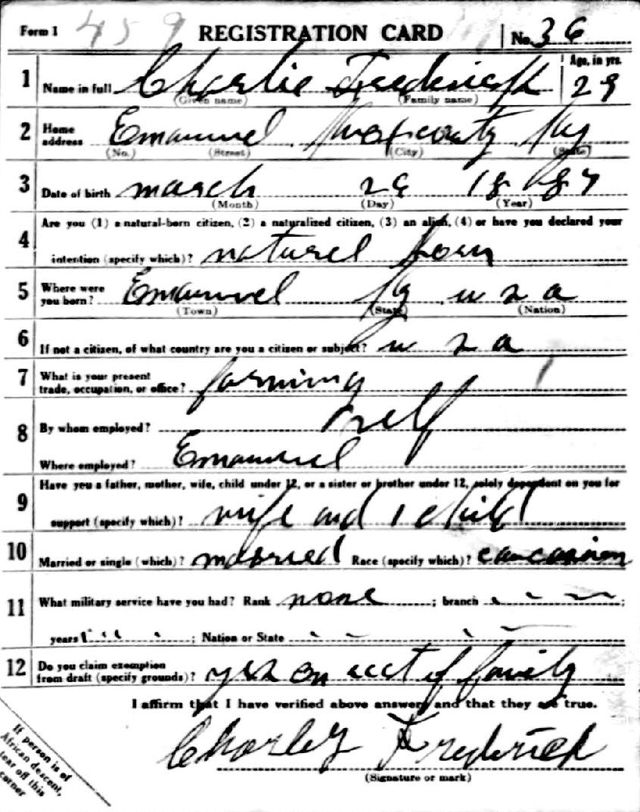 Form 1 459 REGISTRATION CARD No. 36
1 Name in full Charlie Frederick Age, in yrs. 29
(Given name) (Family name)
2 Home address Emanuel Knox county Ky
(No.) (Street) (City) (State)
3 Date of birth march 26 1887
(Month) (Day) (Year)
4 Are you (1) a natural-born citizen, (2) a naturalized citizen, (3) an alien, (4) or have you declared your
intention (specify which)? naturel born
5 Where were you born? Emanuel Ky u s a
(Town) (State) (Nation)
6 If not a citizen, of what country are you a citizen or subject? u s a
7 What is your present trade, occupation, or office? farming
8 By whom employed? self
Where employed? Emanuel
9 Have you a father, mother, wife, child under 12, or a sister or brother under 12, solely dependent on you for
support (specify which)? wife and 1 child
10 Married or single (which)? married Race (specify which)? caucasion
11 What military service have you had? Rank none ; branch ;
years ; Nation or State
12 Do you claim exemption from draft (specify grounds)? yes on acct of family
I affirm that I have verified above answers and that they are true.
Charley Frederick
(Signature or mark)
If person is of
African descent,
tear off this
corner